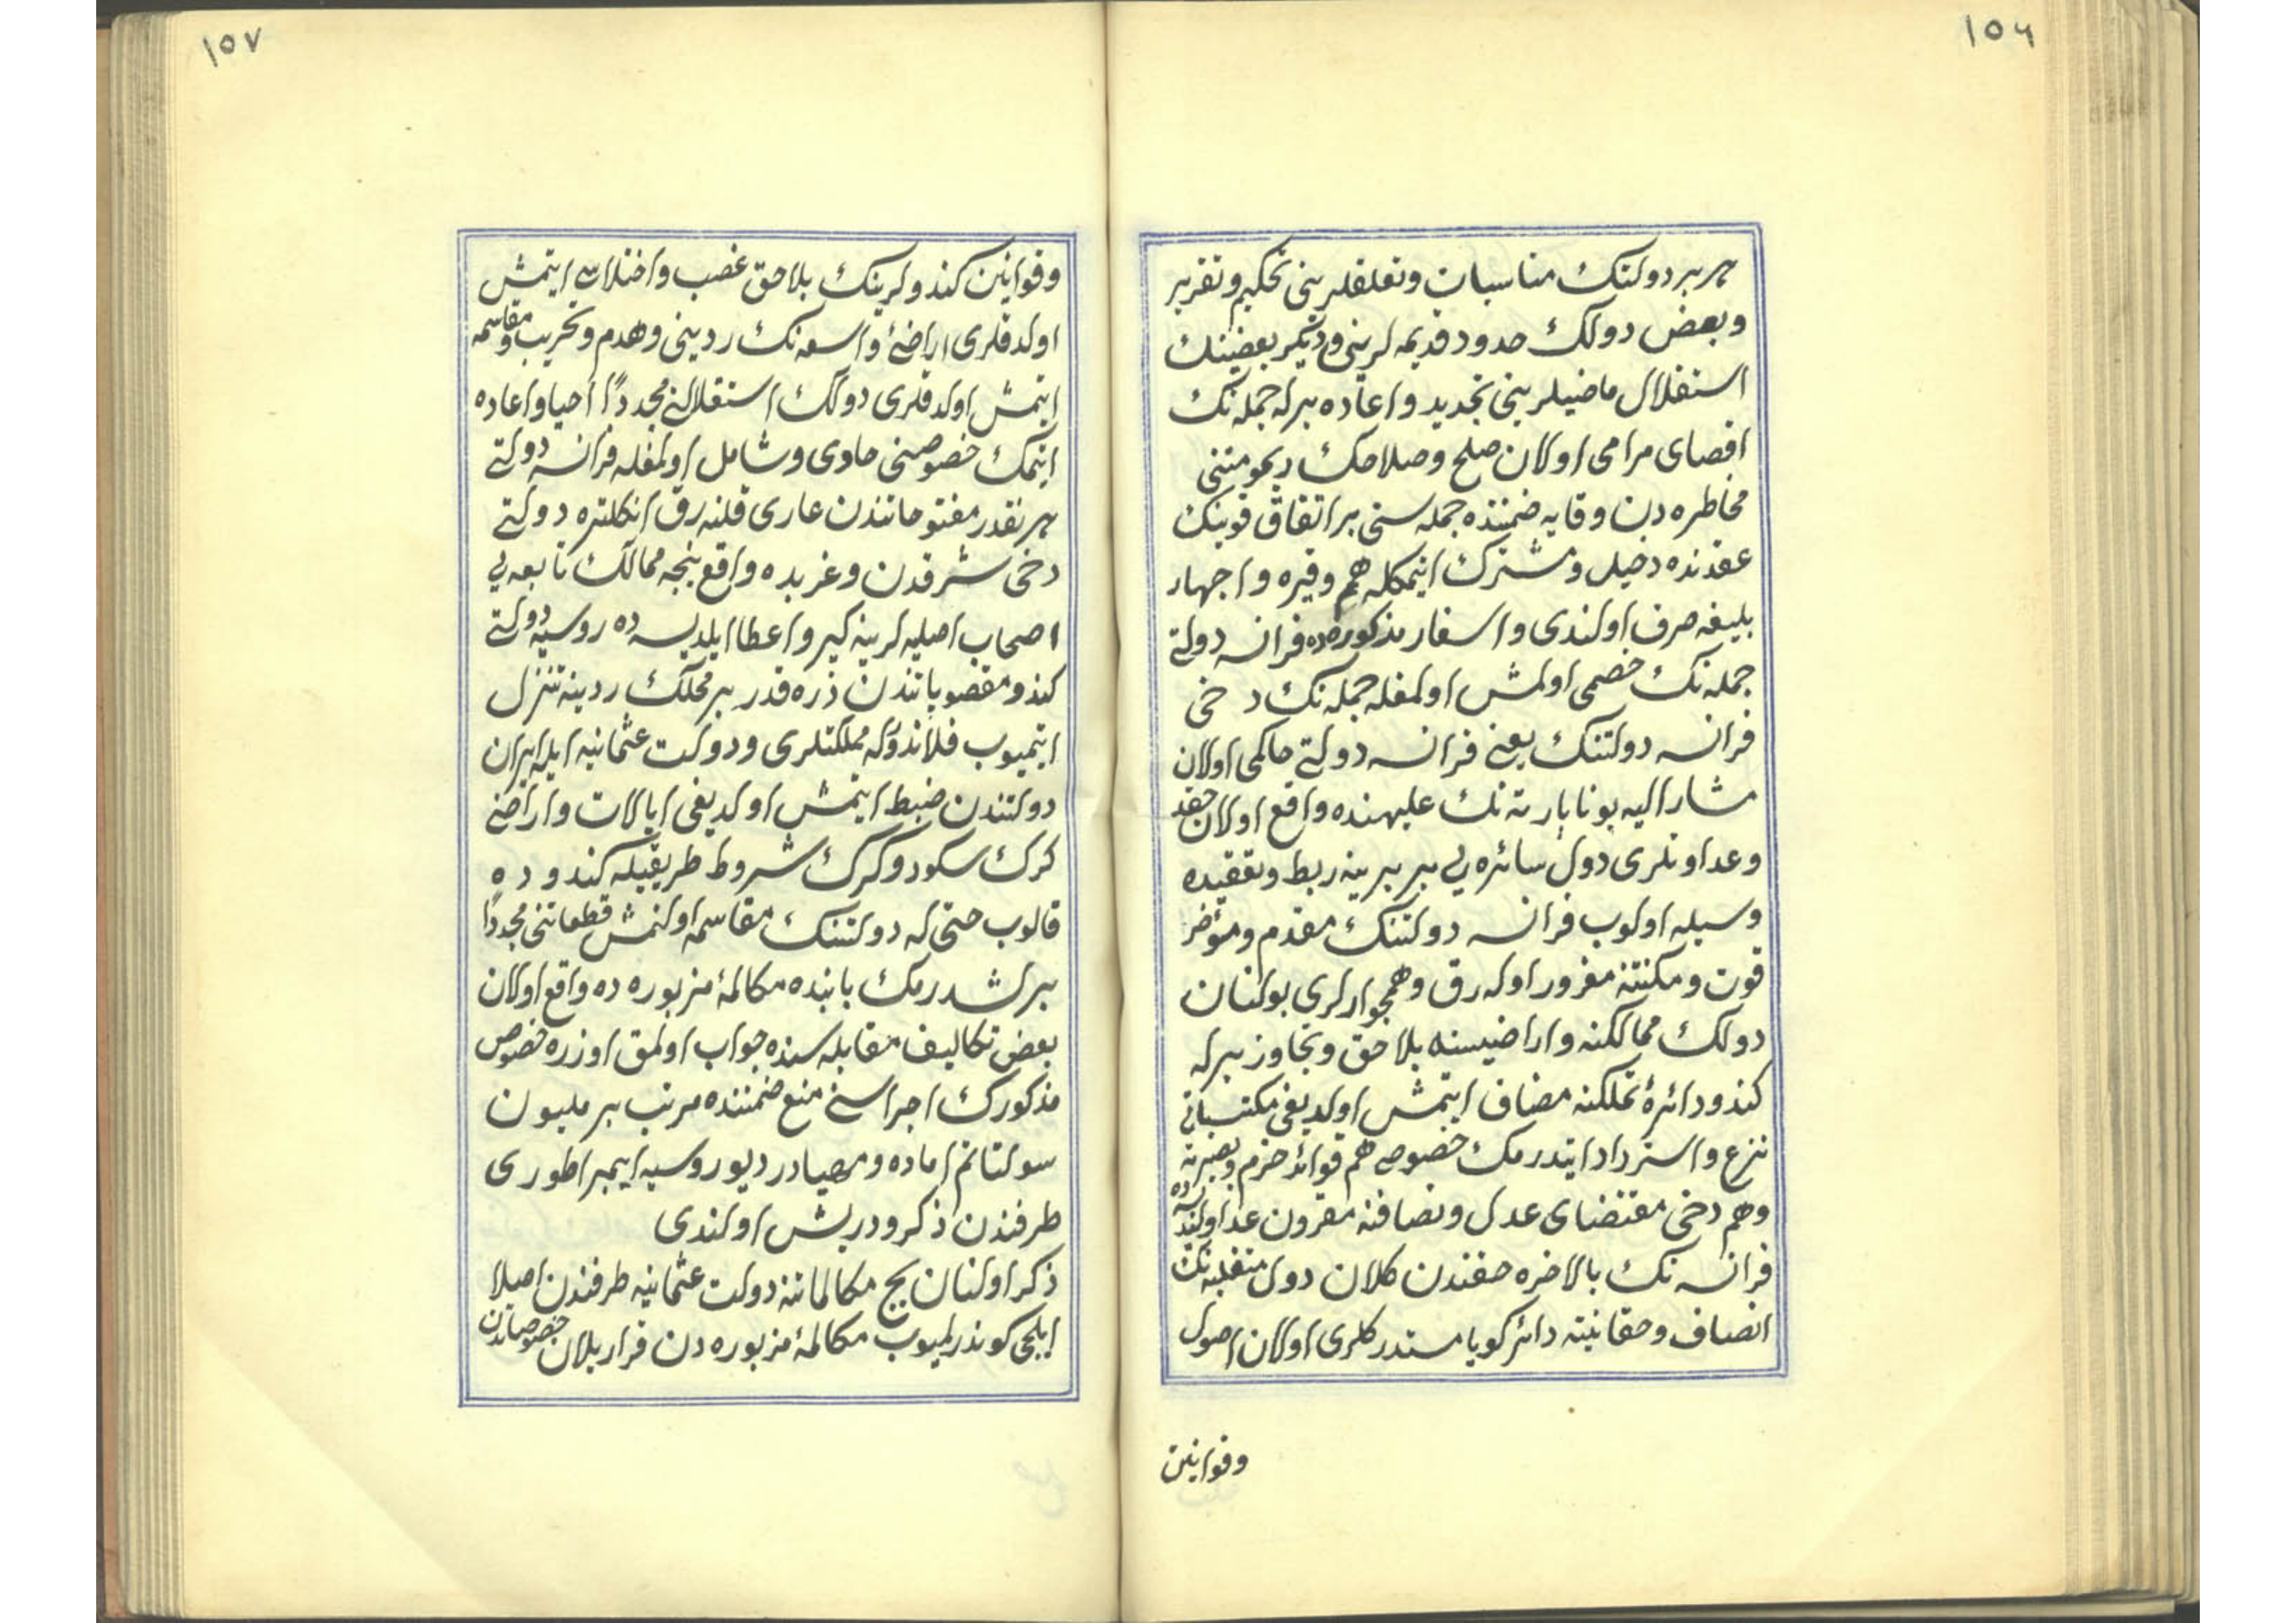 ١٥٦
هر بر دولتنك مناسبات وتعلقلرينى تحكيم وتقرير
وبعض دولك حدود قديمه لرينى وديكر بعضينك
استقلال ماضيلرينى تجديد واعاده برله جمله نك
اقصاى مرامى اولان صلح وصلاحك ديمومتنى
مخاطره دن وقايه ضمننده جمله سنى بر اتفاق قوينك
عقدنده دخيل ومشترك ايتمكله هم وفيره واجهاد
بليغه صرف اولندى واسفار مذكوره ده فرانسه دولتى
جمله نك خصمى اولمش اولمغله جمله نك دخى
فرانسه دولتنك يعنى فرانسه دولتى حاكمى اولان
مشار اليه بوناپارته نك عليهنده واقع اولان حقد
وعداوتلرى دول سائره يى بر برينه ربط وتعقيده
وسيله اولوب فرانسه دولتنك مقدم ومؤخر
قوت ومكنتنه مغرور اوله رق وهمجوارلرى بولنان
دولك ممالكنه واراضيسنه بلا حق وتجاوز برله
كندو دائرۀ تملكنه مضاف ايتمش اولديغى مكتسباتى
نزع واسترداد ايتدرمك خصوصى هم قوائد حزم وبصيرته
وهم دخى مقتضاى عدل ونصافته مقرون عد اولنديسه ده
فرانسه نك بالاخره حقندن كلان دول متغلبه نك
انصاف وحقانيته دائر كويا مستدركلرى اولان اصول
وقوانين
١٥٧
وقوانين كندولرينك بلا حق غصب واختلاس ايتمش
اولدقلرى اراضئ واسعه نك ردينى وهدم وتخريب ومقاسمه
ايتمش اولدقلرى دولك استقلالنى مجددًا احيا واعاده
ايتمك خصوصنى حاوى وشامل اولمغله فرانسه دولتى
هر نقدر مفتوحاتندن عارى قلنه رق انكلتره دولتى
دخى شرقدن وغربده واقع نيجه ممالك تابعه يى
اصحاب اصليه لرينه كيرو اعطا ايلديسه ده روسيه دولتى
كندو مغصوباتندن ذره قدر بر محلك ردينه تنزل
ايتميوب فلاندوكه مملكتلرى ودولت عثمانيه ايله ايران
دولتندن ضبط ايتمش اولديغى ايالات واراضى
كرك سكود وكرك شروط طريقيله كندوده
قالوب حتى له دولتنك مقاسمه اولنمش قطعاتنى مجددًا
برلشدرمك بابنده مكالمۀ مزبوره ده واقع اولان
بعض تكاليف مقابله سنده جواب اولمق اوزره خصوص
مذكورك اجراسنى منع ضمننده مرتب بر مليون
سولتاتم اماده ومهيادر ديو روسيه ايمپراطورى
طرفندن ذكر ودرپيش اولندى
ذكر اولنان بج مكالماتنه دولت عثمانيه طرفندن اصلا
ايلچى كوندرلميوب مكالمۀ مزبوره دن قرار بولان خصوصاتدن